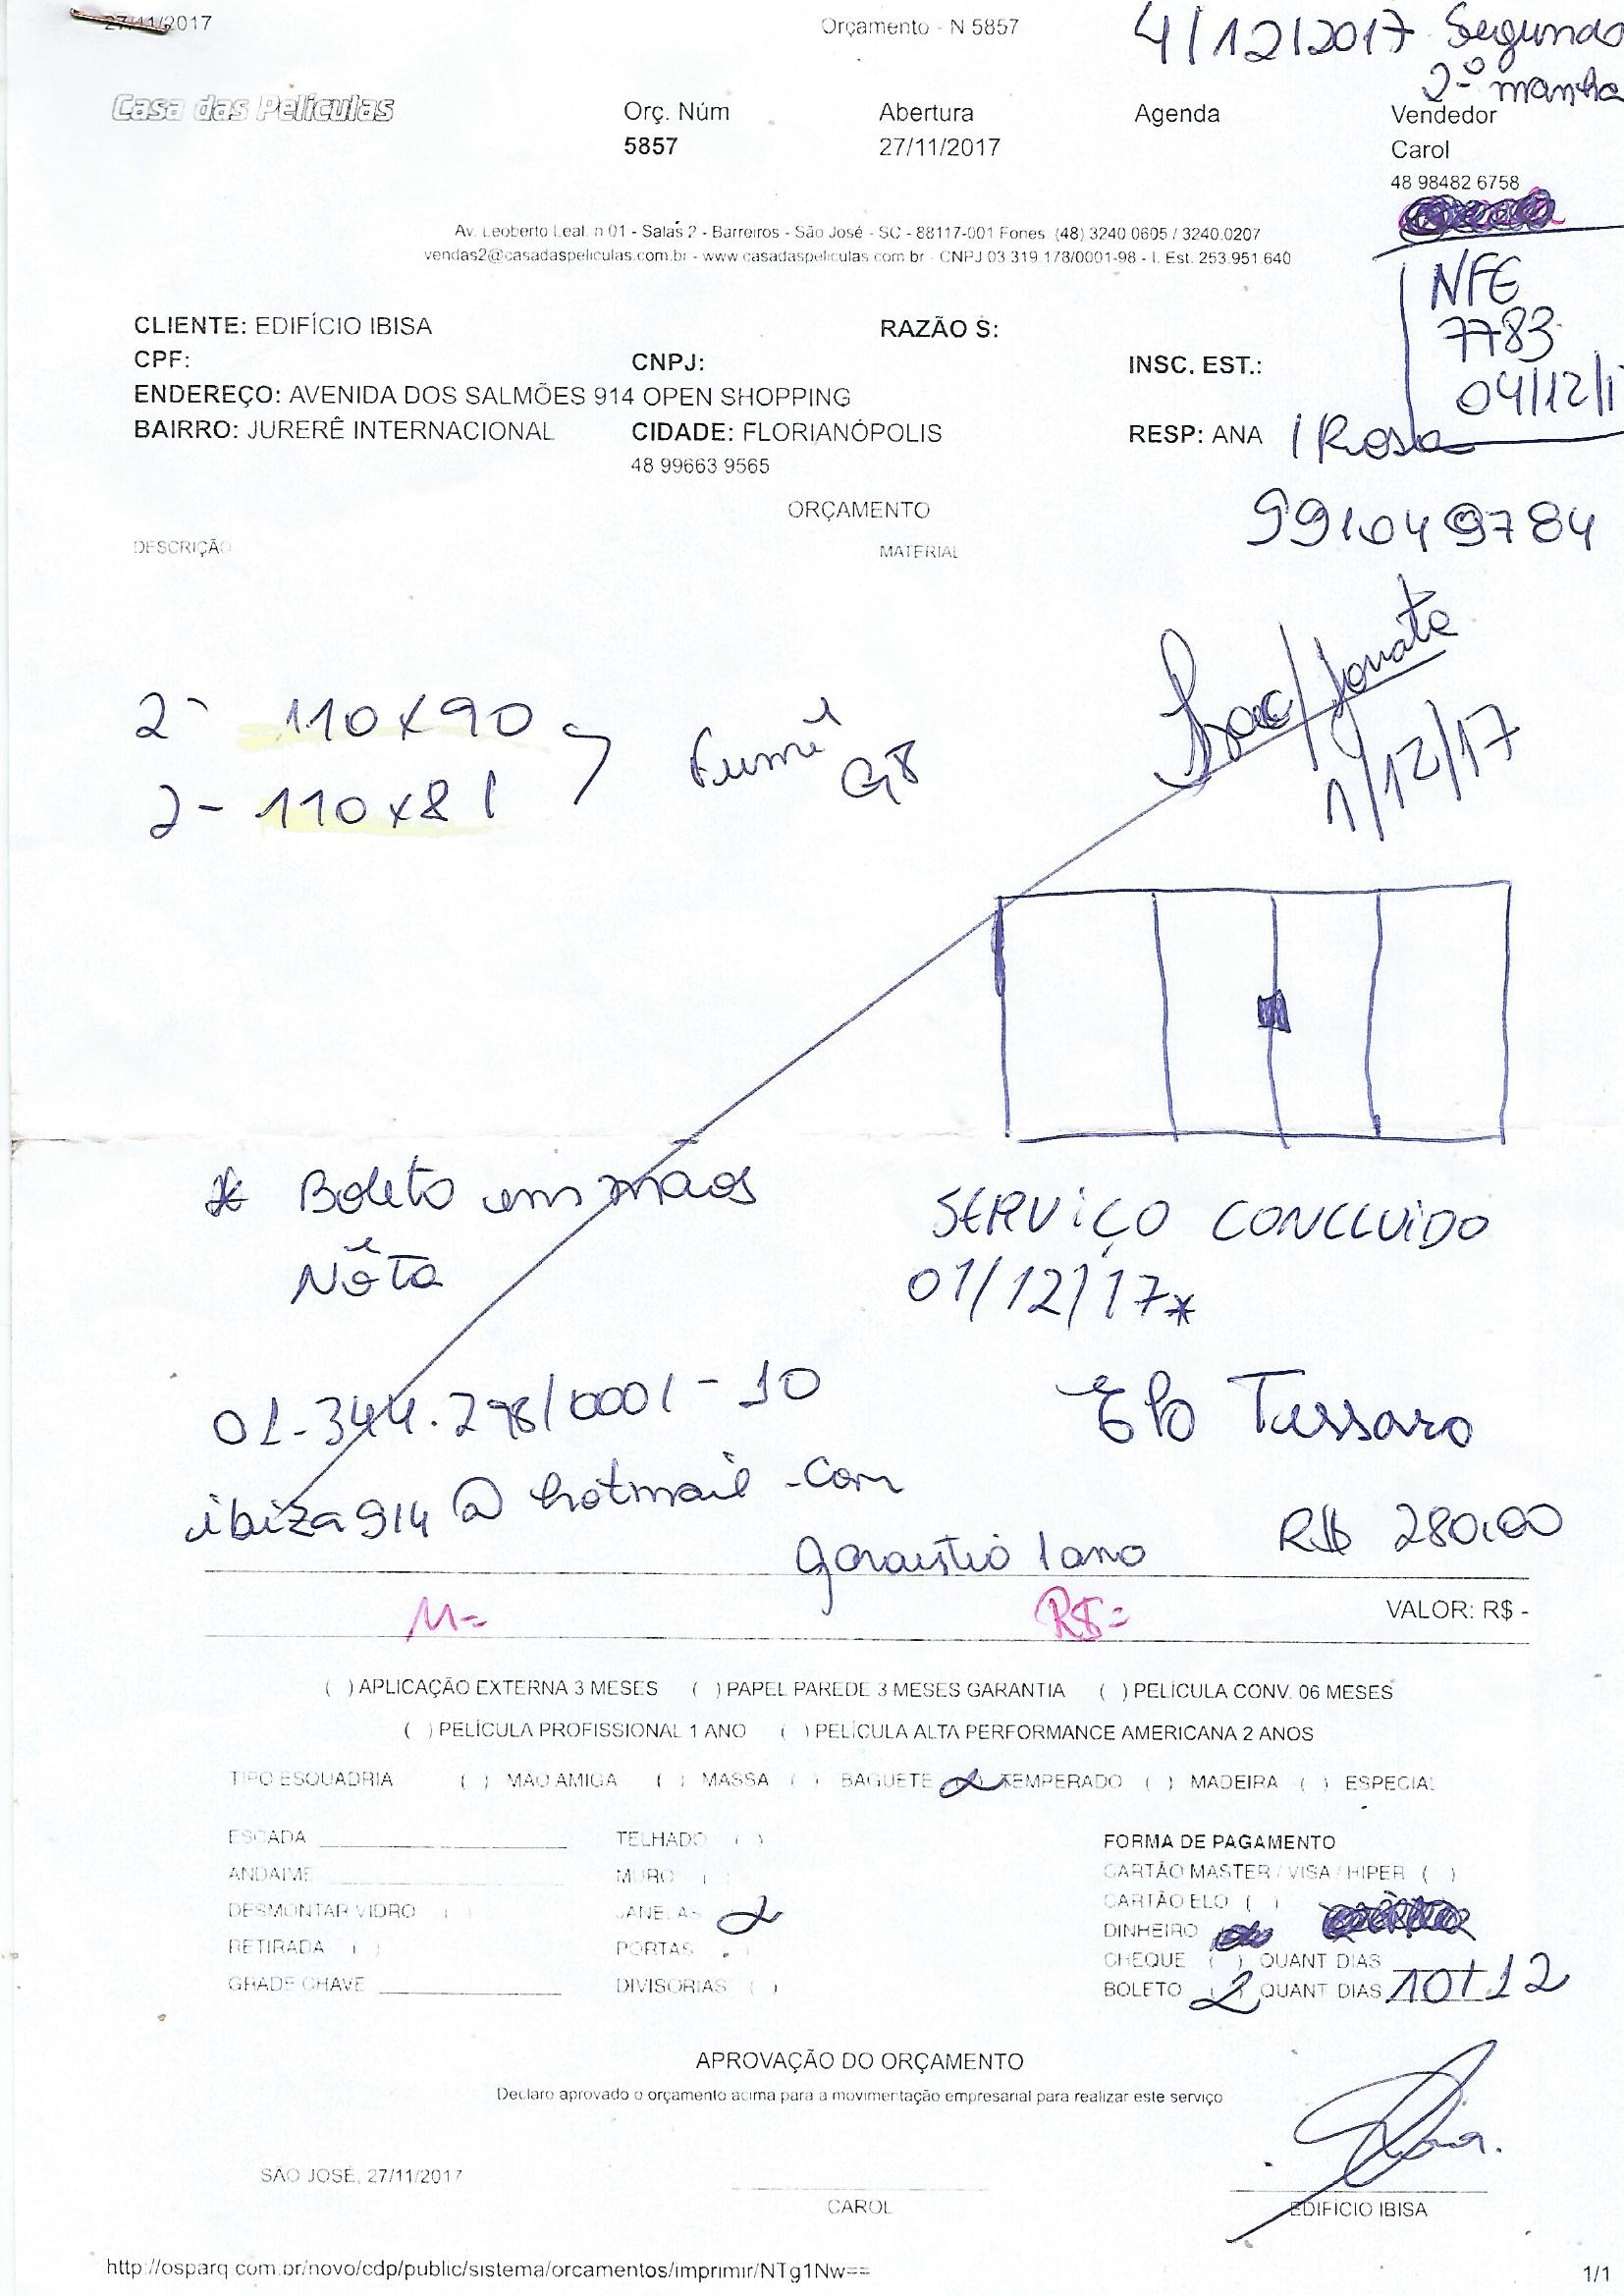 27/11/2017 Orçamento - N 5857 4/12/2017 Segunda
2º manha
Casa das Películas Orç. Núm Abertura Agenda Vendedor
5857 27/11/2017 Carol
48 98482 6758
Av. Leoberto Leal. n 01 - Salas 2 - Barreiros - São José - SC - 88117-001 Fones (48) 3240 0605 / 3240.0207
vendas2@casadaspeliculas.com.br - www.casadaspeliculas.com.br - CNPJ 03 319.178/0001-98 - I. Est. 253.951.640
NFE
7783
04/12/1
CLIENTE: EDIFÍCIO IBISA RAZÃO S:
CPF: CNPJ: INSC. EST.:
ENDEREÇO: AVENIDA DOS SALMÕES 914 OPEN SHOPPING
BAIRRO: JURERÊ INTERNACIONAL CIDADE: FLORIANÓPOLIS RESP: ANA / Rosa
48 99663 9565
991049784
ORÇAMENTO
DESCRIÇÃO MATERIAL
Isac/Jonata
1/12/17
2- 110x90
Fumê
G8
2- 110x81
* Boleto em mãos
Nota
SERVIÇO CONCLUIDO
01/12/17*
01.344.298/0001-10
Tussaro
ibiza914@hotmail.com
garantia 1 ano R$ 280,00
M= R$= VALOR: R$ -
( ) APLICAÇÃO EXTERNA 3 MESES ( ) PAPEL PAREDE 3 MESES GARANTIA ( ) PELÍCULA CONV. 06 MESES
( ) PELÍCULA PROFISSIONAL 1 ANO ( ) PELÍCULA ALTA PERFORMANCE AMERICANA 2 ANOS
TIPO ESQUADRIA ( ) MAO AMIGA ( ) MASSA ( ) BAGUETE ( ) TEMPERADO ( ) MADEIRA ( ) ESPECIAL
ESCADA TELHADO ( ) FORMA DE PAGAMENTO
ANDAIME MURO ( ) CARTÃO MASTER / VISA / HIPER ( )
DESMONTAR VIDRO ( ) JANELAS CARTÃO ELO ( )
RETIRADA ( ) PORTAS ( ) DINHEIRO
CHEQUE ( ) QUANT DIAS
GRADE CHAVE DIVISORIAS ( ) BOLETO QUANT DIAS 10/12
APROVAÇÃO DO ORÇAMENTO
Declaro aprovado o orçamento acima para a movimentação empresarial para realizar este serviço
SÃO JOSÉ, 27/11/2017
CAROL EDIFÍCIO IBISA
http://osparq.com.br/novo/cdp/public/sistema/orcamentos/imprimir/NTg1Nw== 1/1